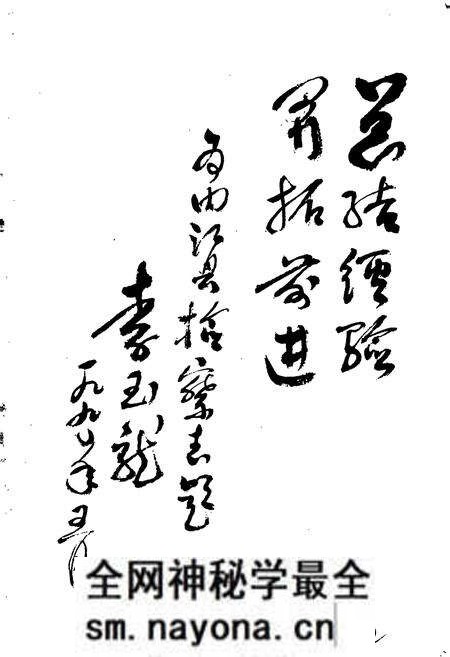 总结经验
开拓前进
为内江县检察志题
李玉龙
一九九〇年五月
全网神秘学最全
sm.nayona.cn